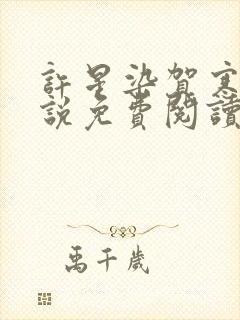 許星染賀寒
說免費閱讀
禹千歲